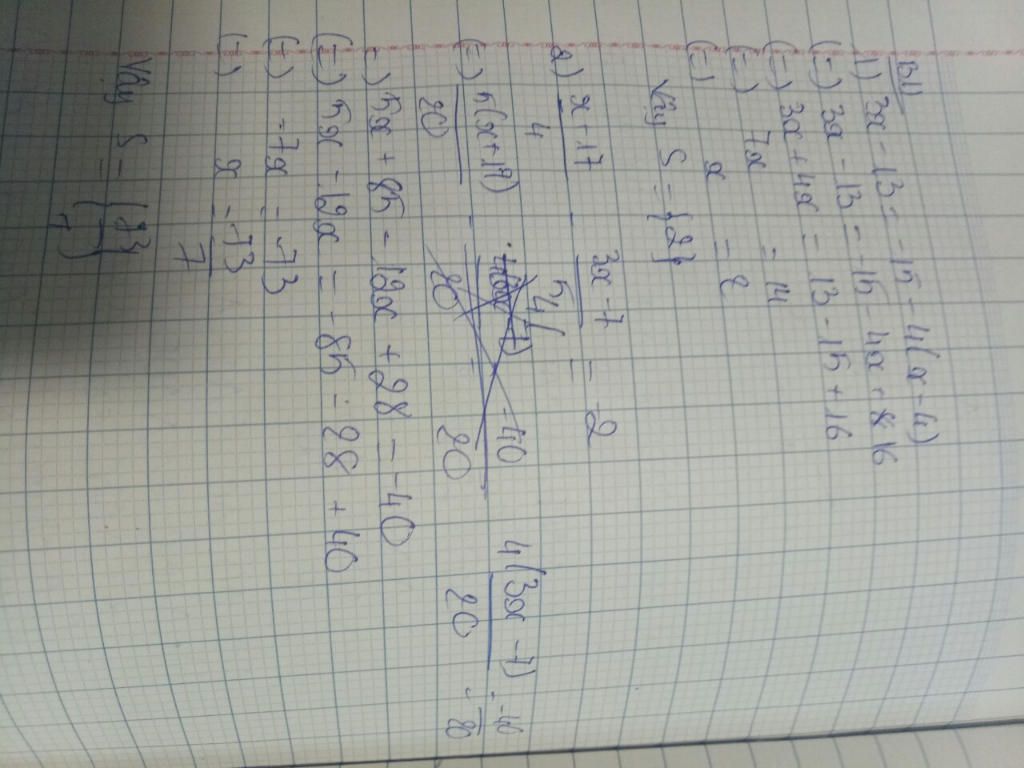 B1
1) 3x - 13 = -15 - 4(x - 4)
(=) 3x - 13 = -15 - 4x + 16
(=) 3x + 4x = 13 - 15 + 16
(=) 7x = 14
(=) x = 2
Vậy S = {2}
2) x + 17 3x - 7
4 - 5 = -2
(=) 5(x + 17) - 4( -40 4(3x - 7) = -40
20 20 = 20 20 20
(=) 5x + 85 - 12x + 28 = -40
(=) 5x - 12x = -85 - 28 + 40
(=) -7x = -73
(=) x = -73
7
Vậy S = {73
7}